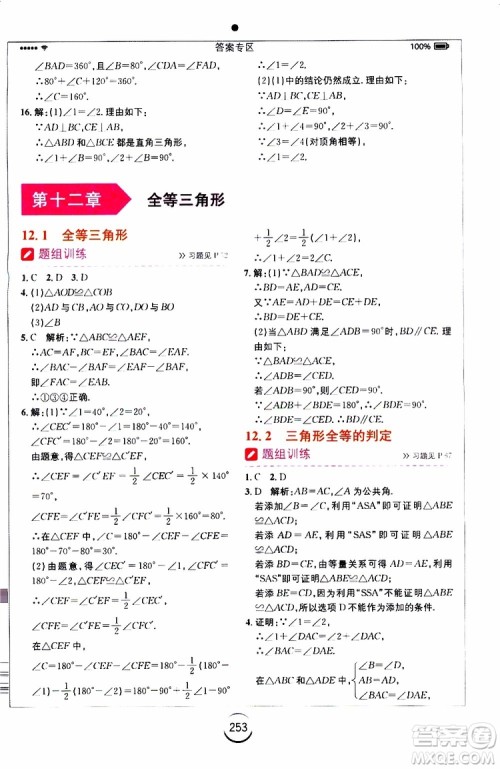 答案专区
100%
∠BAD=360°，
∴80°+∠BAD+∠C=360°.
∴∠C=160°.
16.解：(1)∠1=∠2. 理由如下：
∵AD⊥BC,CE⊥AB，
∴△ABD和△BCE都是直角三角形.
∴∠1+∠B=90°,∠2+∠B=90°.
∴∠1=∠2.
(2)(1)中的结论仍然成立. 理由如下：
∵AD⊥BC,CE⊥AB，
∴∠D=∠E=90°.
∵∠ABD=∠CBE(对顶角相等)，
∴∠1=∠2.
第十二章
全等三角形
12.1 全等三角形
题组训练
习题见
1. C 2. D 3. D
4. (1)△AOD≌△COB
(2)AD与CB,AO与CO,OD与OB
(3)∠B
5. C 解析：∵△ABC≌△AEF，
∴AC=AF,EF=BC,∠BAC=∠EAF.
∴∠BAC-∠BAF=∠EAF-∠BAF，
即∠FAC=∠EAB.
∴①③④正确.
6. 解：(1)∵∠1=40°,∠2=40°，
∴∠AEC′=140°,∠BFC′=140°.
由题意，得△CEF≌△C′EF.
∴∠CEF=∠C′EF=1/2∠CEC′=1/2×140°
=70°，
∠CFE=∠C′FE=1/2∠CFC′=1/2×140°=70°.
在△CEF中,∠C=180°-∠CEF-∠CFE=
180°-70°-70°=40°.
(2)由题意，得△CEF≌△C′EF.
∴∠CEF=∠C′EF=1/2∠CEC′=1/2(180°
-∠1)，
∠CFE=∠C′FE=1/2∠CFC′=1/2(180°-∠2).
在△CEF中，
∠C=180°-∠CEF-∠CFE
=180°-1/2(180°-∠1)-1/2(180°-∠2)
=180°-90°+1/2∠1-90°
+1/2∠2=1/2(∠1+∠2).
∴∠1+∠2=2∠C.
7. 解：(1)∵△BAD≌△ACE，
∴BD=AE,AD=CE.
又∵AE=AD+DE，
∴BD=CE+DE.
(2)当△ABD满足∠ADB=90°时,BD∥CE.
理由如下：∵△BAD≌△ACE，
∴∠ADB=∠CEA.
若∠ADB=90°,则∠CEA=90°,∠BDE=90°.
∴∠CEA=∠BDE=90°.∴BD∥CE.
12.2 三角形全等的判定
题组训练
习题见
1. C 2. D
3. D 解析：∵AB=AC,∠A为公共角.
若添加∠B=∠C,利用“ASA”即可证明△ABE
≌△ACD；
若添加AD=AE,利用“SAS”即可证明△ABE
≌△ACD；
若添加BD=CE,由等量关系可得AD=AE,利用
“SAS”即可证明△ABE≌△ACD；
若添加BE=CD,因为“SSA”不能证明△ABE
≌△ACD,所以选项D不能作为添加的条件.
4. 证明：∵∠1=∠2，
∴∠1+∠EAC=∠2+∠EAC，
即∠BAC=∠DAE.
在△ABC和△ADE中，{∠B=∠D，
AB=AD，
∠BAC=∠DAE，
253
答案圈